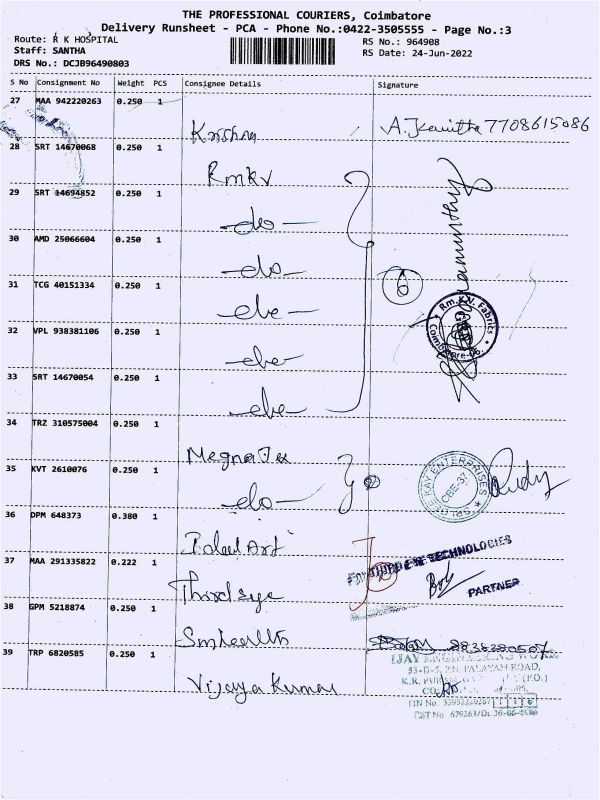 THE PROFESSIONAL COURIERS, Coimbatore
Delivery Runsheet - PCA - Phone No.:0422-3505555 - Page No.:3
Route: R K HOSPITAL
RS No.: 964908
Staff: SANTHA
RS Date: 24-Jun-2022
DRS No.: DCJB96490803
S No Consignment No Weight PCS Consignee Details Signature
27 MAA 942220263 0.250 1
Krishna A. Kavitha 7708615086
28 SRT 14670068 0.250 1
Rmkv
29 SRT 14694852 0.250 1
-do-
30 AMD 25066604 0.250 1
-do-
31 TCG 40151334 0.250 1
6
Rm.K.V. Fabrics
Coimbatore
32 VPL 938381106 0.250 1
33 SRT 14670054 0.250 1
34 TRZ 310575004 0.250 1
Megna Tex
35 KVT 2610076 0.250 1
-do-
KAY ENTERPRISES
CBE-37
36 DPM 648373 0.380 1
37 MAA 291335822 0.222 1
Third eye
TECHNOLOGIES
PARTNER
38 GPM 5218874 0.250 1
39 TRP 6820585 0.250 1
Vijaya Kumar
ROAD,